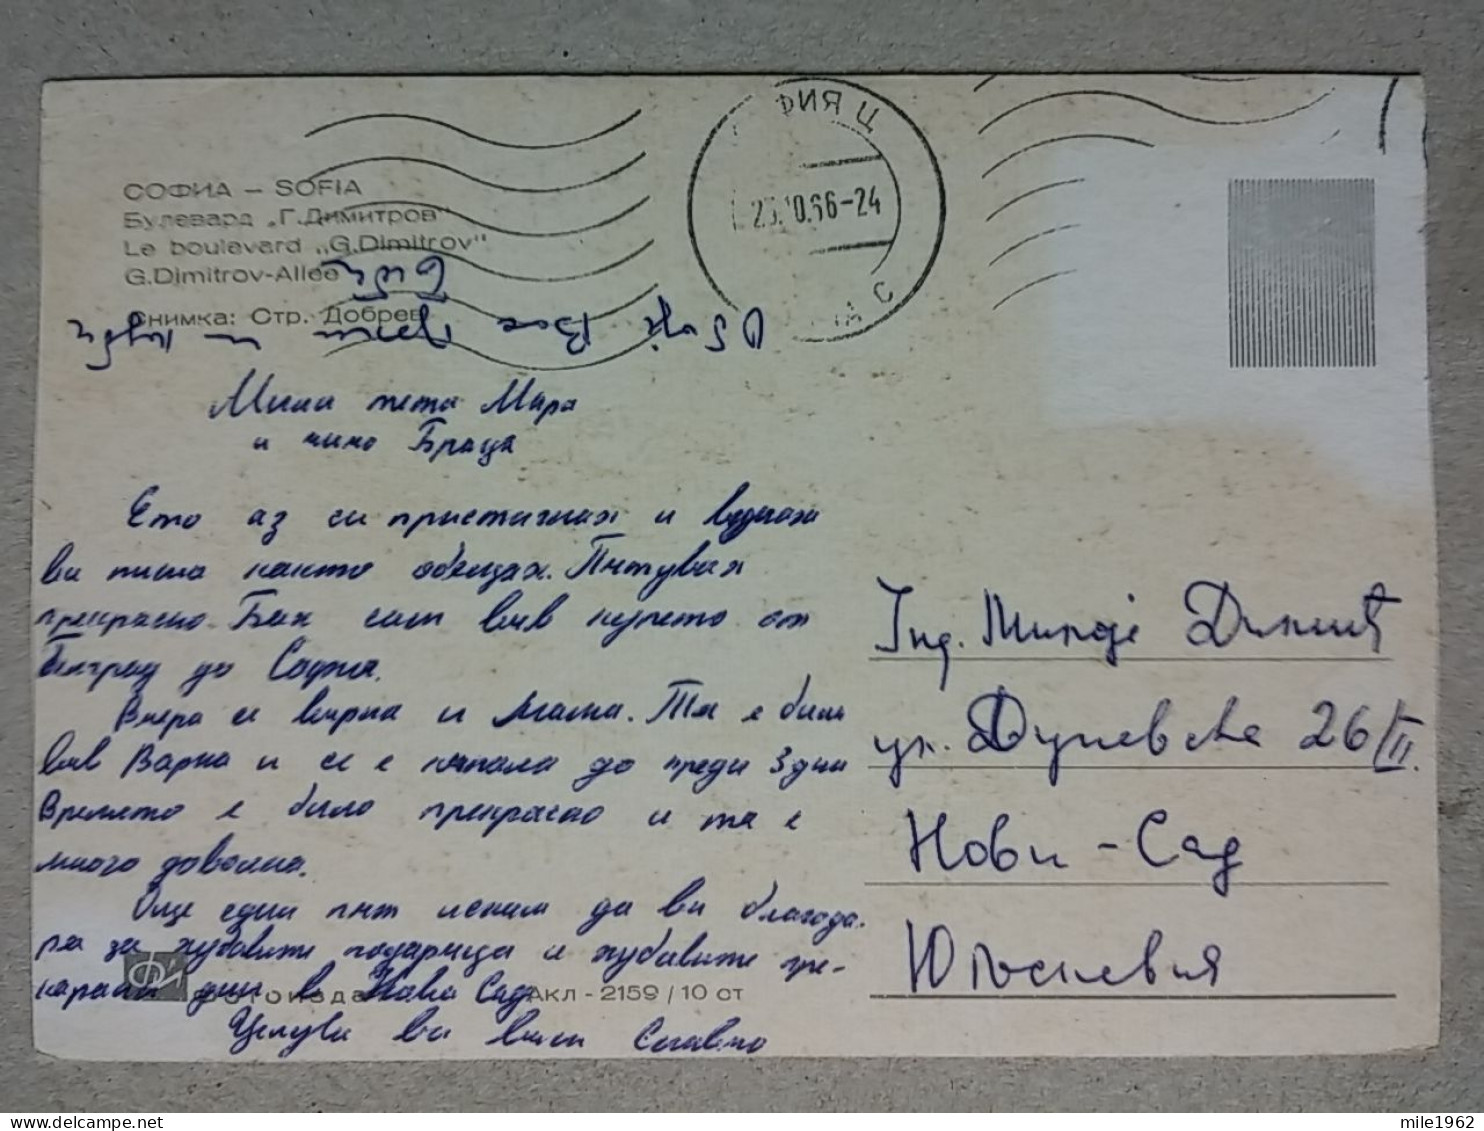 СОФИА – SOFIA
Булевард „Г.Димитров"
Le boulevard „G.Dimitrov"
G.Dimitrov-Allee
Снимка: Стр. Добрев
ФИЯ Ц
.10.66-24
С
Мили тета Мара
и чичо Браца
Ето аз си пристигнах и веднага
ви пиша както обещах. Пътувах
прекрасно. Бях сам във купето от
Белград до София.
Вчера се върна и Мама. Тя е била
във Варна и се е къпала до преди 3 дни
Времето е било прекрасно и тя е
много доволна.
Още един път искам да ви благода-
ря за хубавите подаръци и хубавите пре-
карани дни в Нови Сад.
Целува ви ваш
Инд. Милоје
ул. 26/III.
Нови - Сад
Югославия
Фи
фотоизда
АКЛ - 2159 / 10 ст
mile1962